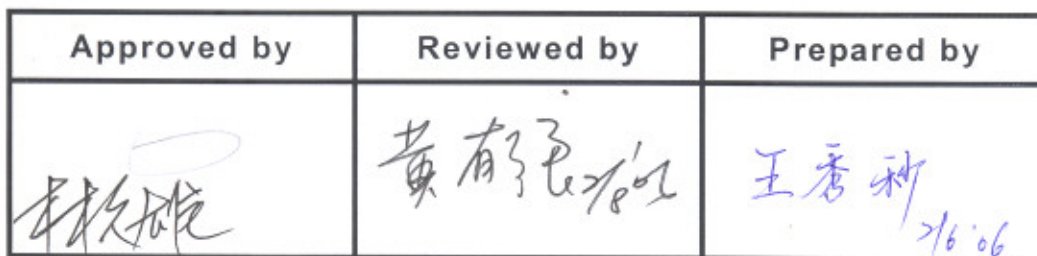 Approved by
Reviewed by
Prepared by
黄有張 2/8'06
王秀秒
2/6'06